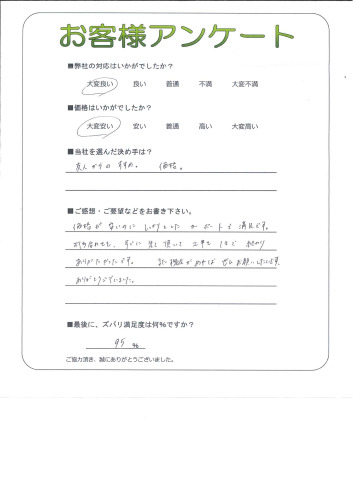 お客様アンケート
■弊社の対応はいかがでしたか?
大変良い 良い 普通 不満 大変不満
■価格はいかがでしたか?
大変安い 安い 普通 高い 大変高い
■当社を選んだ決め手は?
友人からのすすめ。 価格。
■ご感想・ご要望などをお書き下さい。
価格が安いのにしっかりとしたカーポートで満足です。
打ち合わせも、すぐに来て頂いて工事も
ありがたかったです。 また機会があればぜひお願いしたいです。
ありがとうございました。
■最後に、ズバリ満足度は何%ですか?
95 %
ご協力頂き、誠にありがとうございました。